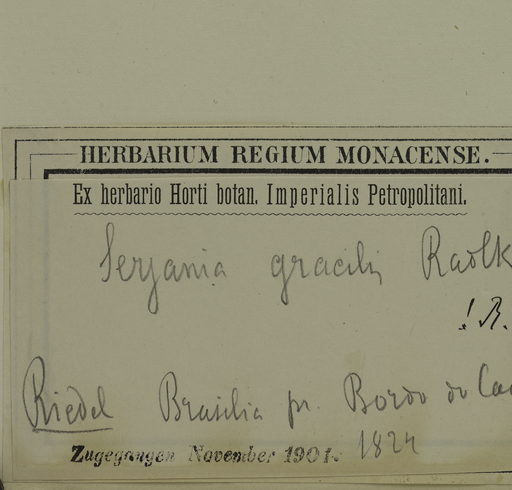 HERBARIUM REGIUM MONACENSE.
Ex herbario Horti botan. Imperialis Petropolitani.
Serjania gracilis Radlk
! R.
Riedel Brasilia pr. Bordo do
Zugegangen November 1901. 1824